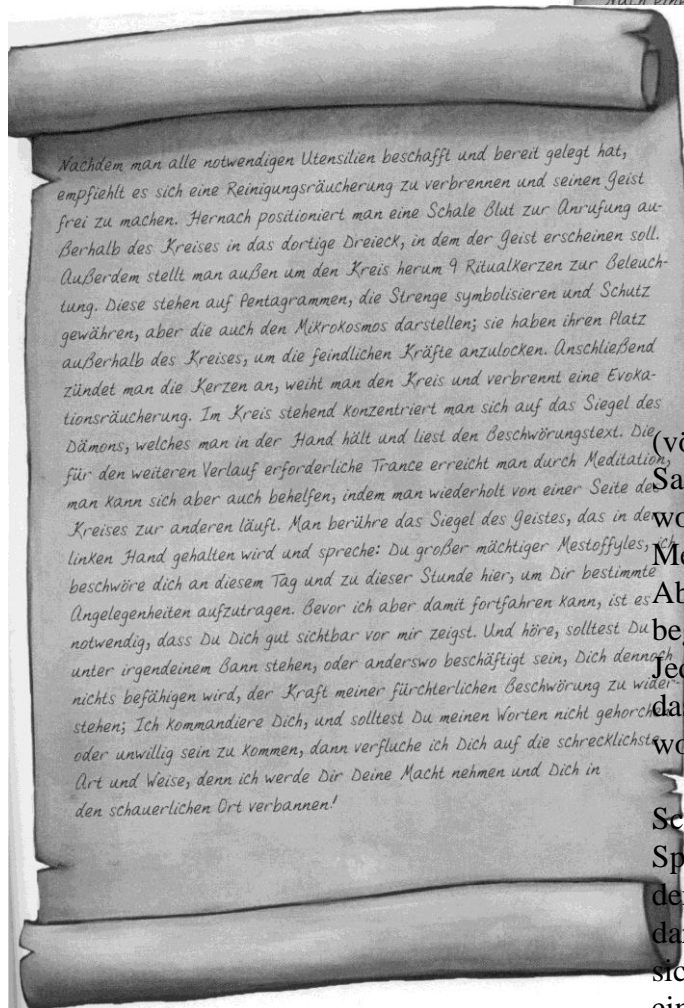 Nach
Nachdem man alle notwendigen Utensilien beschafft und bereit gelegt hat,
empfiehlt es sich eine Reinigungsräucherung zu verbrennen und seinen Geist
frei zu machen. Hernach positioniert man eine Schale Blut zur Anrufung au-
ßerhalb des Kreises in das dortige Dreieck, in dem der Geist erscheinen soll.
Außerdem stellt man außen um den Kreis herum 9 Ritualkerzen zur Beleuch-
tung. Diese stehen auf Pentagrammen, die Strenge symbolisieren und Schutz
gewähren, aber die auch den Mikrokosmos darstellen; sie haben ihren Platz
außerhalb des Kreises, um die feindlichen Kräfte anzulocken. Anschließend
zündet man die Kerzen an, weiht man den Kreis und verbrennt eine Evoka-
tionsräucherung. Im Kreis stehend konzentriert man sich auf das Siegel des
Dämons, welches man in der Hand hält und liest den Beschwörungstext. Die
für den weiteren Verlauf erforderliche Trance erreicht man durch Meditation,
man kann sich aber auch behelfen, indem man wiederholt von einer Seite des
Kreises zur anderen läuft. Man berühre das Siegel des Geistes, das in der
linken Hand gehalten wird und spreche: Du großer mächtiger Mestoffyles, ich
beschwöre dich an diesem Tag und zu dieser Stunde hier, um Dir bestimmte
Angelegenheiten aufzutragen. Bevor ich aber damit fortfahren kann, ist es
notwendig, dass Du Dich gut sichtbar vor mir zeigst. Und höre, solltest Du
unter irgendeinem Bann stehen, oder anderswo beschäftigt sein, Dich dennoch
nichts befähigen wird, der Kraft meiner fürchterlichen Beschwörung zu wider-
stehen; Ich kommandiere Dich, und solltest Du meinen Worten nicht gehorchen
oder unwillig sein zu kommen, dann verfluche ich Dich auf die schrecklichste
Art und Weise, denn ich werde Dir Deine Macht nehmen und Dich in
den schauerlichen Ort verbannen!